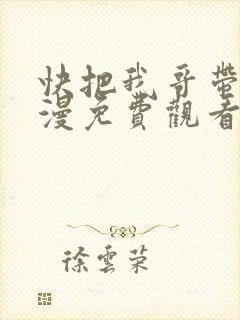 快把我哥帶
漫免費觀看
徐雲榮